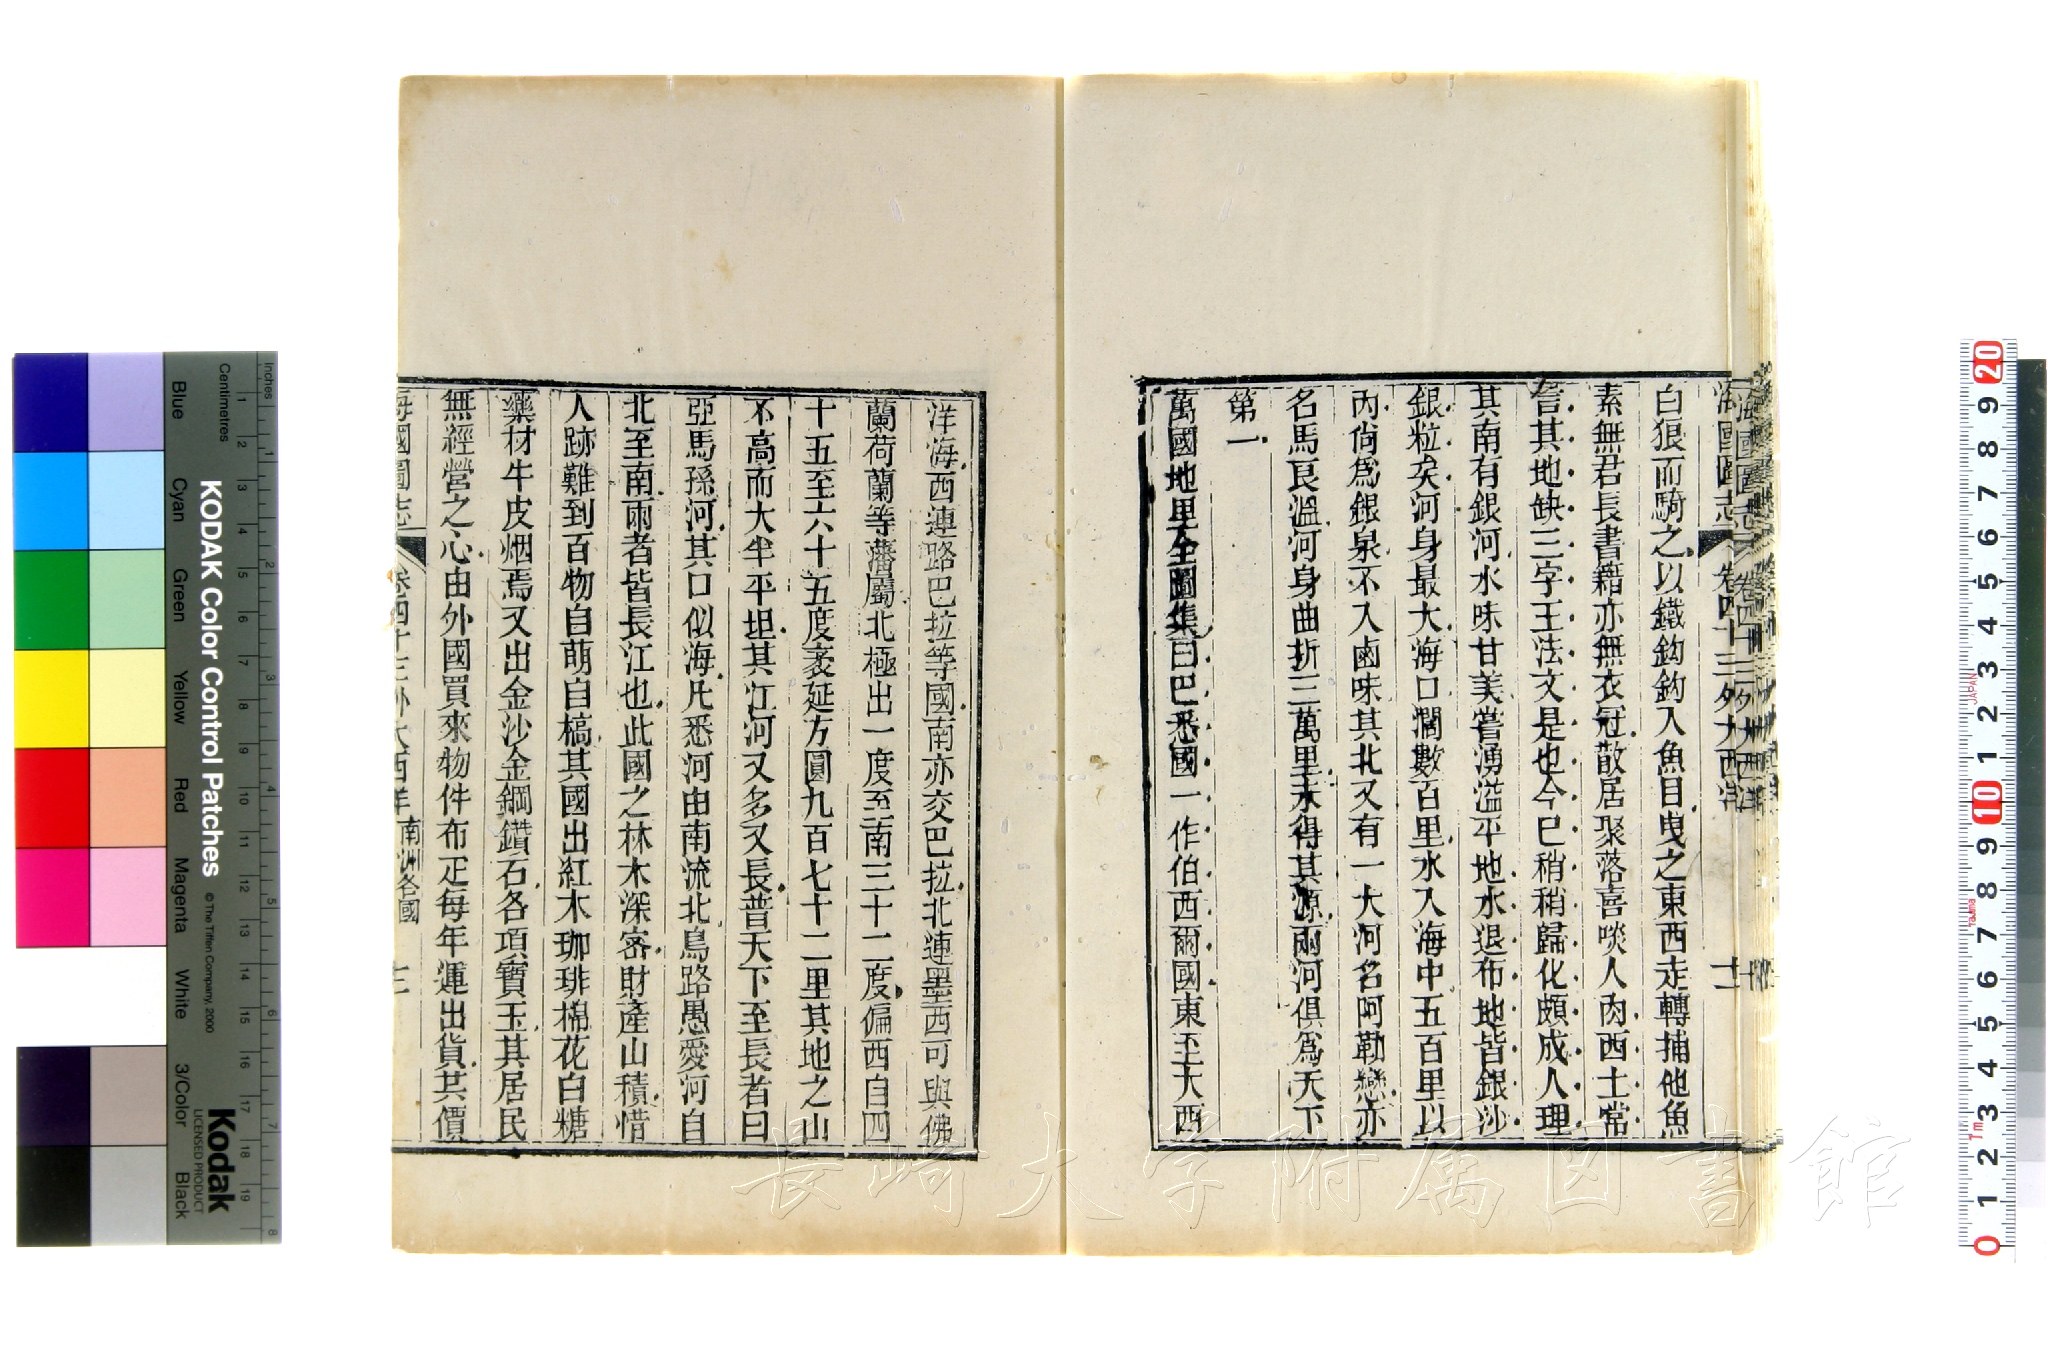 海國圖志 卷四十三外大西洋 十二
白狠而騎之以鐵鈎鈎入魚目曳之東西走轉捕他魚
素無君長書籍亦無衣冠散居聚落喜啖人肉西士常
言其地缺三字王法文是也今已稍稍歸化頗成人理
其南有銀河水味甘美嘗湧溢平地水退布地皆銀沙
銀粒矣河身最大海口濶數百里水入海中五百里以
內尙爲銀泉不入鹵味其北又有一大河名阿勒戀亦
名馬良溫河身曲折三萬里未得其源兩河俱爲天下
第一
萬國地里全圖集曰巴悉國一作伯西爾國東至大西
洋海西連路巴拉等國南亦交巴拉北連墨西可與佛
蘭荷蘭等藩屬北極出一度至南三十二度偏西自四
十五至六十五度袤延方圓九百七十二里其地之山
不高而大半平坦其江河又多又長普天下至長者曰
亞馬孫河其口似海凡悉河由南流北烏路愚愛河自
北至南兩者皆長江也此國之林木深密財產山積惜
人跡難到百物自萌自槁其國出紅木珈琲棉花白糖
藥材牛皮烟焉又出金沙金鋼鑽石各項寶玉其居民
無經營之心由外國買來物件布疋每年運出貨其價
海國圖志 卷四十三外大西洋 南洲各國
KODAK Color Control Patches
© The Tiffen Company, 2000
Kodak
LICENSED PRODUCT
Inches
Centimetres
Blue Cyan Green Yellow Red Magenta White 3/Color Black
1 2 3 4 5 6 7 8 9 10 11 12 13 14 15 16 17 18 19
1 2 3 4 5 6 7 8
20 9 8 7 6 5 4 3 2 1 10 9 8 7 6 5 4 3 2 1 0
JAPAN
長崎大学附属図書館